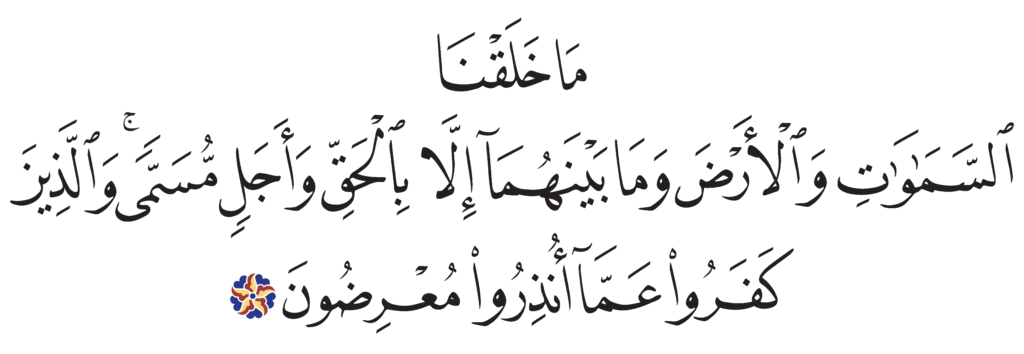 مَا خَلَقْنَا
ٱلسَّمَـٰوَٰتِ وَٱلْأَرْضَ وَمَا بَيْنَهُمَآ إِلَّا بِٱلْحَقِّ وَأَجَلٍ مُّسَمًّى ۚ وَٱلَّذِينَ
كَفَرُوا۟ عَمَّآ أُنذِرُوا۟ مُعْرِضُونَ